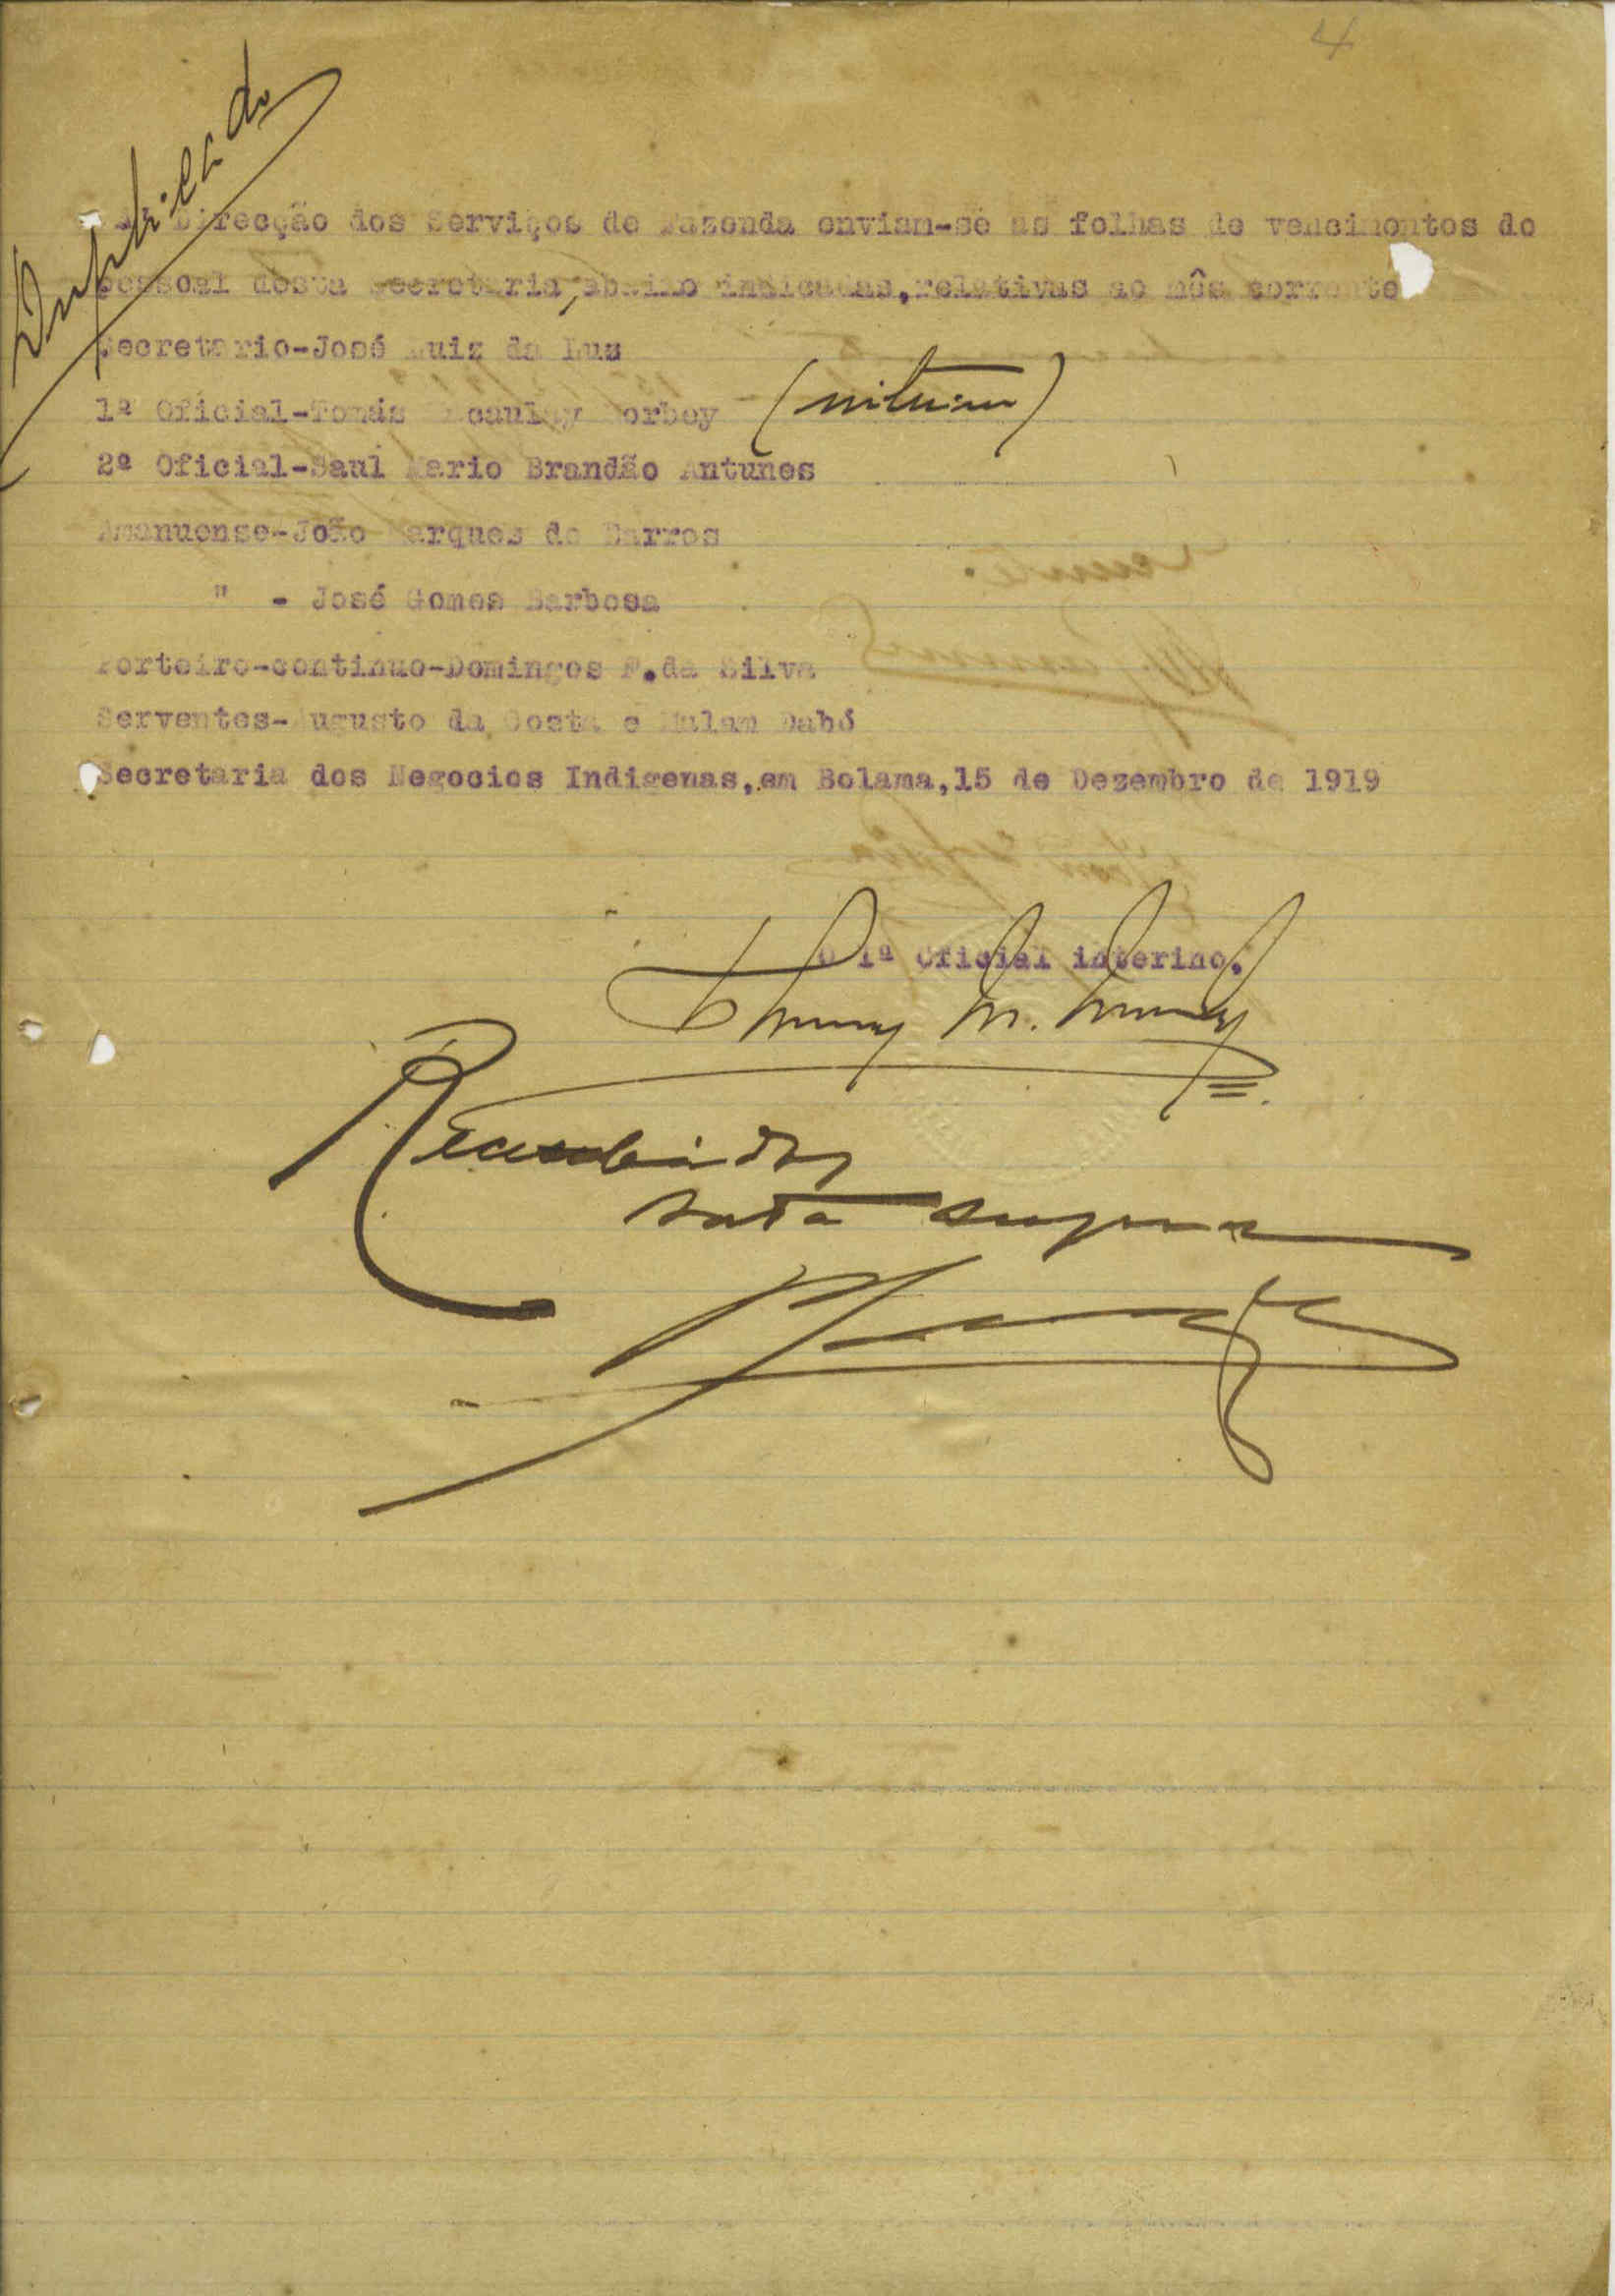 4
Duplicado
Direcção dos Serviços de Fazenda enviam-se as folhas de vencimentos do
pessoal desta Secretaria, abaixo indicadas, relativas ao mês corrente
Secretario-José Luiz da Luz
1º Oficial-Tomás Macaulay (interino)
2º Oficial-Saul Mario Brandão Antunes
Amanuense-João Marques de Barros
" - José Gomes Barbosa
Porteiro-continuo-Domingos F. da Silva
Serventes-Augusto da Costa e Malam Dabó
Secretaria dos Negocios Indigenas, em Bolama, 15 de Dezembro de 1919
O 1º Oficial interino,
data supra